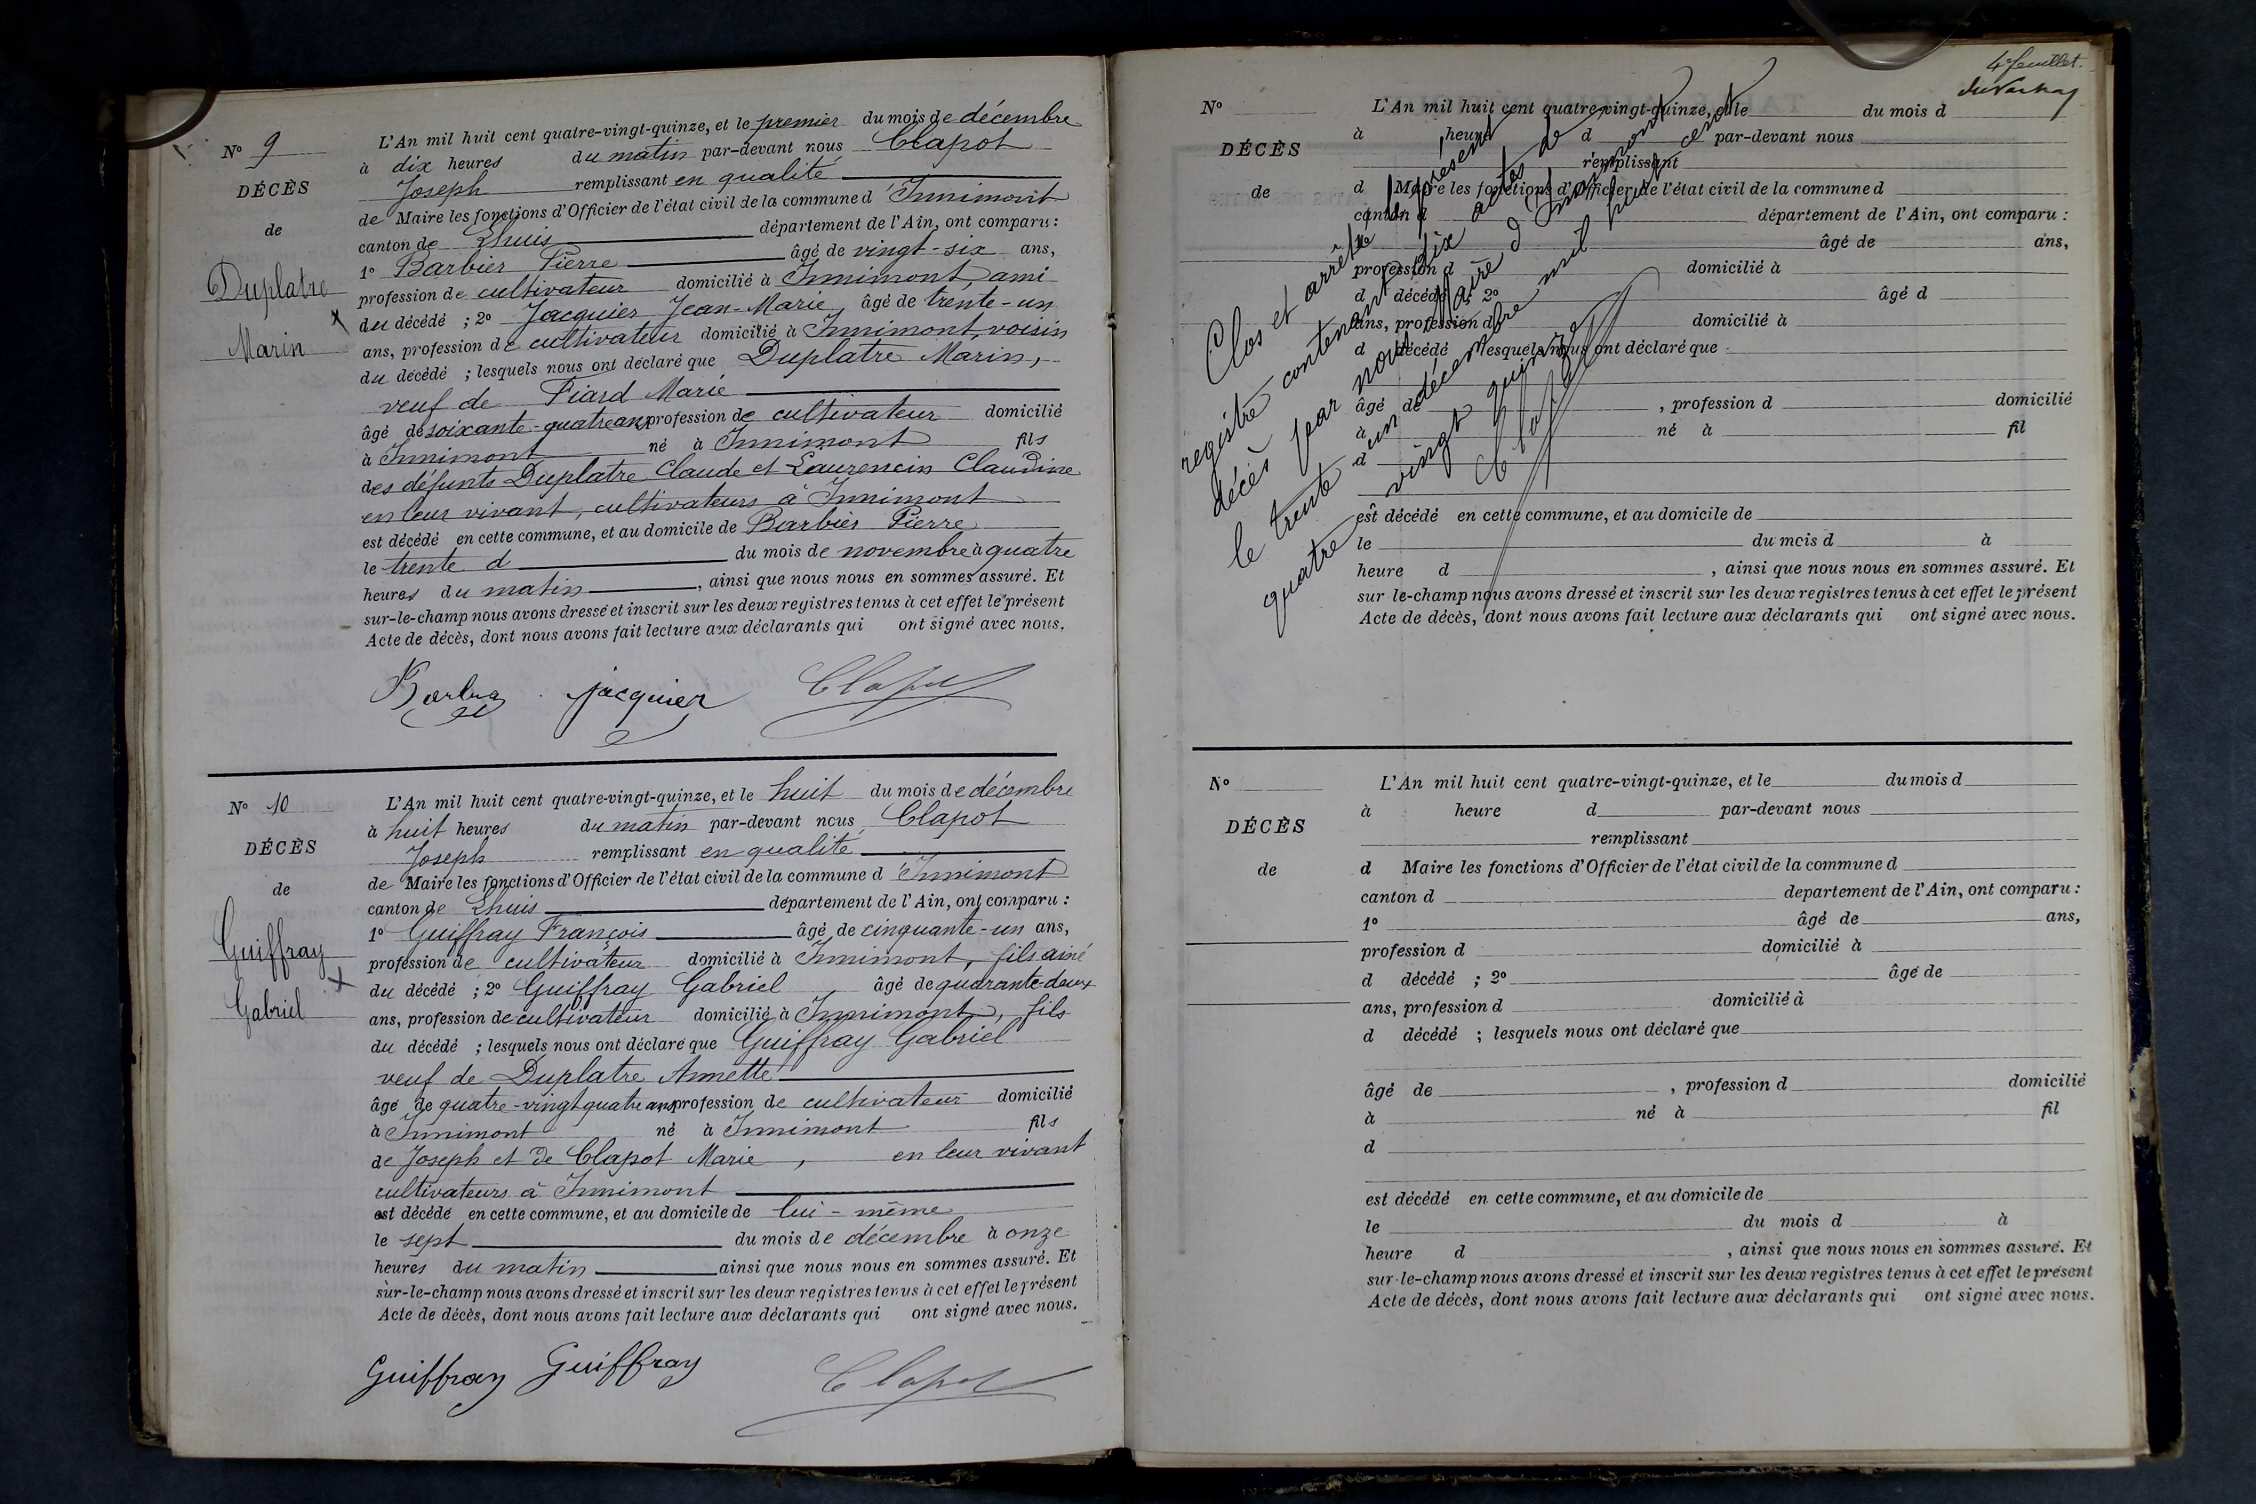 N° 9
DÉCÈS
de
Duplatre
Marin
L'An mil huit cent quatre-vingt-quinze, et le premier du mois de décembre
à dix heures du matin par-devant nous Clapot
Joseph remplissant en qualité
de Maire les fonctions d'Officier de l'état civil de la commune d'Innimont
canton de Lhuis département de l'Ain, ont comparu :
1° Barbier Pierre âgé de vingt-six ans,
profession de cultivateur domicilié à Innimont, ami
du décédé ; 2° Jacquier Jean-Marie, âgé de trente-un
ans, profession de cultivateur domicilié à Innimont, voisin
du décédé ; lesquels nous ont déclaré que Duplatre Marin,
veuf de Fiard Marie
âgé de soixante-quatre ans profession de cultivateur domicilié
à Innimont né à Innimont fils
des défunts Duplatre Claude et Laurencin Claudine
en leur vivant, cultivateurs à Innimont
est décédé en cette commune, et au domicile de Barbier Pierre
le trente d du mois de novembre à quatre
heures du matin, ainsi que nous nous en sommes assuré. Et
sur-le-champ nous avons dressé et inscrit sur les deux registres tenus à cet effet le présent
Acte de décès, dont nous avons fait lecture aux déclarants qui ont signé avec nous.
Jacquier Clapot
N° 10
DÉCÈS
de
Guiffray
Gabriel
L'An mil huit cent quatre-vingt-quinze, et le huit du mois de décembre
à huit heures du matin par-devant nous Clapot
Joseph remplissant en qualité
de Maire les fonctions d'Officier de l'état civil de la commune d'Innimont
canton de Lhuis département de l'Ain, ont comparu :
1° Guiffray François âgé de cinquante-un ans,
profession de cultivateur domicilié à Innimont, fils ainé
du décédé ; 2° Guiffray Gabriel âgé de quarante-deux
ans, profession de cultivateur domicilié à Innimont, fils
du décédé ; lesquels nous ont déclaré que Guiffray Gabriel
veuf de Duplatre Annette
âgé de quatre-vingt quatre ans profession de cultivateur domicilié
à Innimont né à Innimont fils
de Joseph et de Clapot Marie, en leur vivant
cultivateurs à Innimont
est décédé en cette commune, et au domicile de lui-même
le sept du mois de décembre à onze
heures du matin ainsi que nous nous en sommes assuré. Et
sur-le-champ nous avons dressé et inscrit sur les deux registres tenus à cet effet le présent
Acte de décès, dont nous avons fait lecture aux déclarants qui ont signé avec nous.
Guiffray Guiffray Clapot
4e feuillet.
N°
DÉCÈS
de
L'An mil huit cent quatre-vingt-quinze, et le du mois d
à heure d par-devant nous
remplissant
d Maire les fonctions d'Officier de l'état civil de la commune d
canton d département de l'Ain, ont comparu :
1° âgé de ans,
profession d domicilié à
d décédé ; 2° âgé d
ans, profession d domicilié à
d décédé lesquels nous ont déclaré que
âgé de , profession d domicilié
à né à fil
d
est décédé en cette commune, et au domicile de
le du mois d à
heure d , ainsi que nous nous en sommes assuré. Et
sur le-champ nous avons dressé et inscrit sur les deux registres tenus à cet effet le présent
Acte de décès, dont nous avons fait lecture aux déclarants qui ont signé avec nous.
Clos et arrêté le présent
registre contenant dix actes de
décès par nous Maire d'Innimont
le trente un décembre mil huit cent
quatre vingt quinze
Clapot
N°
DÉCÈS
de
L'An mil huit cent quatre-vingt-quinze, et le du mois d
à heure d par-devant nous
remplissant
d Maire les fonctions d'Officier de l'état civil de la commune d
canton d departement de l'Ain, ont comparu :
1° âgé de ans,
profession d domicilié à
d décédé ; 2° âgé de
ans, profession d domicilié à
d décédé ; lesquels nous ont déclaré que
âgé de , profession d domicilié
à né à fil
d
est décédé en cette commune, et au domicile de
le du mois d à
heure d , ainsi que nous nous en sommes assuré. Et
sur-le-champ nous avons dressé et inscrit sur les deux registres tenus à cet effet le présent
Acte de décès, dont nous avons fait lecture aux déclarants qui ont signé avec nous.